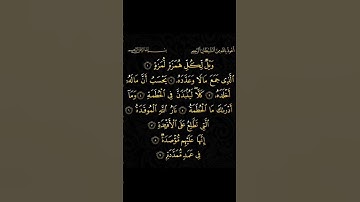 أعوذ بالله من الشيطان الرجيم بسم الله الرحمن الرحيم
وَيْلٌ لِّكُلِّ هُمَزَةٍ لُّمَزَةٍ ١
الَّذِي جَمَعَ مَالًا وَعَدَّدَهُ ٢ يَحْسَبُ أَنَّ مَالَهُ
أَخْلَدَهُ ٣ كَلَّا لَيُنبَذَنَّ فِي الْحُطَمَةِ ٤ وَمَا
أَدْرَاكَ مَا الْحُطَمَةُ ٥ نَارُ اللَّهِ الْمُوقَدَةُ ٦
الَّتِي تَطَّلِعُ عَلَى الْأَفْئِدَةِ ٧
إِنَّهَا عَلَيْهِم مُّؤْصَدَةٌ ٨
فِي عَمَدٍ مُّمَدَّدَةٍ ٩